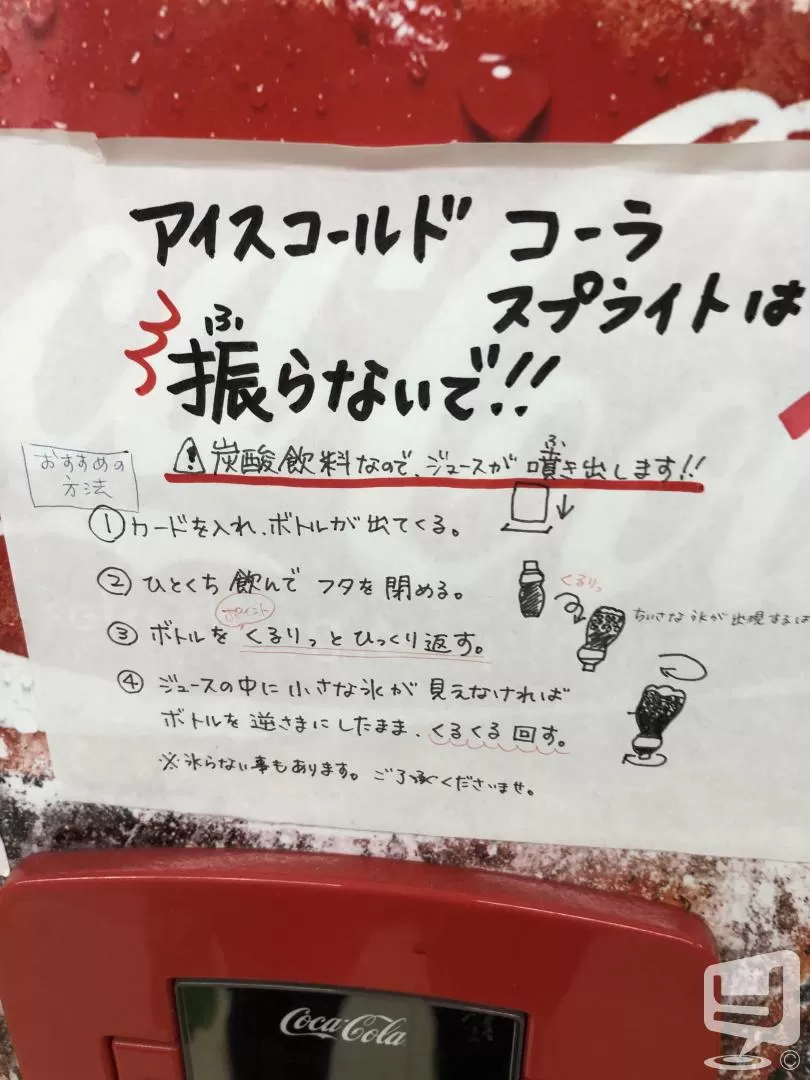 アイスコールド コーラ
スプライトは
ふ
振らないで!!
おすすめの
方法
ふ
炭酸飲料なので、ジュースが噴き出します!!
① カードを入れ、ボトルが出てくる。
② ひとくち 飲んで フタを 閉める。
くるりっ
ポイント
③ ボトルを くるりっと ひっくり返す。
ちいさな 氷が 出現するは
④ ジュースの中に 小さな氷が 見えなければ
ボトルを 逆さまにしたまま、くるくる 回す。
※氷らない事もあります。ご了承くださいませ。
Coca-Cola
©